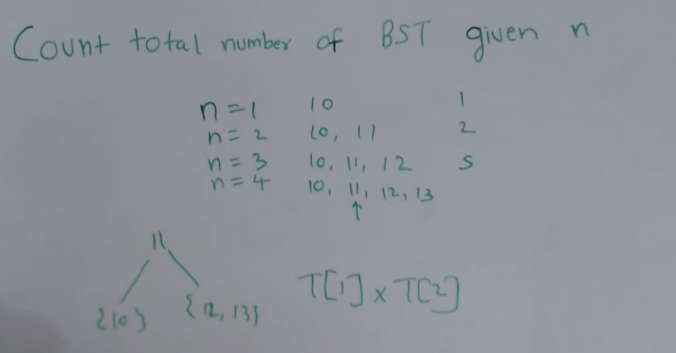 Count total number of BST given n
n=1 10 1
n=2 10, 11 2
n=3 10, 11, 12 5
n=4 10, 11, 12, 13
11
{10} {12, 13}
T[1] x T[2]